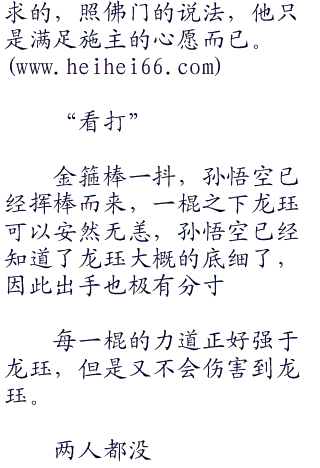 求的，照佛门的说法，他只
是满足施主的心愿而已。
(www.heihei66.com)
“看打”
金箍棒一抖，孙悟空已
经挥棒而来，一棍之下龙珏
可以安然无恙，孙悟空已经
知道了龙珏大概的底细了，
因此出手也极有分寸
每一棍的力道正好强于
龙珏，但是又不会伤害到龙
珏。
两人都没